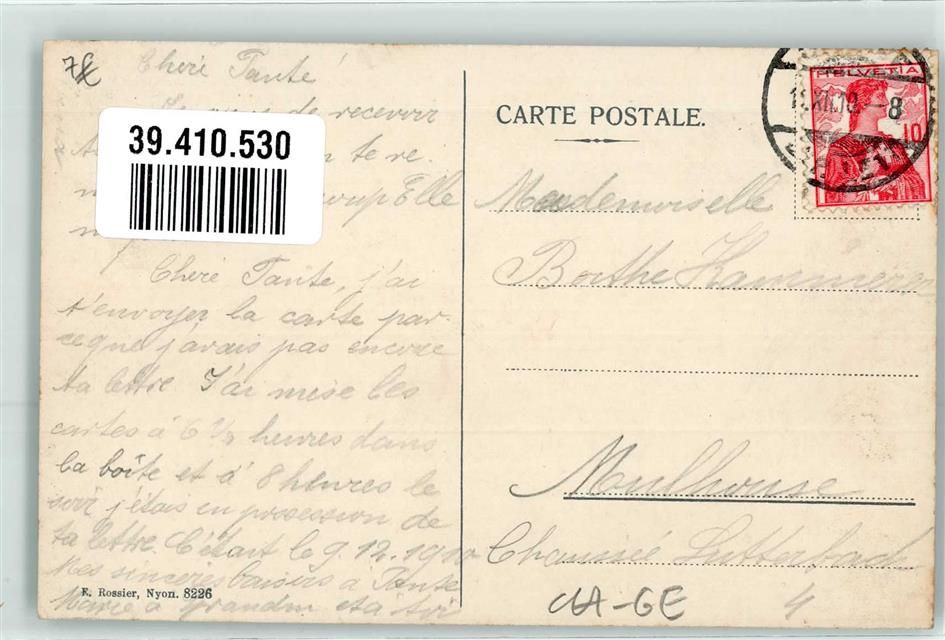 Cheré Tante!
Je viens de recevoir
39.410.530
te re.
Elle
Cheré Tante, j'ai
t'envoyer la carte par-
ceque j'avais pas encore
ta lettre. J'ai mise les
cartes á 6 1/2 heures dans
la boîte et á 8 heures le
soir j'étais en prosession de
ta lettre. C'était le 9.12.1910
Mes sincères baisers a Tante
E. Rossier, Nyon. 8226
Marie a grandm et á toi
CARTE POSTALE.
HELVETIA
10
8
Mademoiselle
Berthe Kammerer
Mulhouse
Chaussée Lutterbach
4
CHA-GE